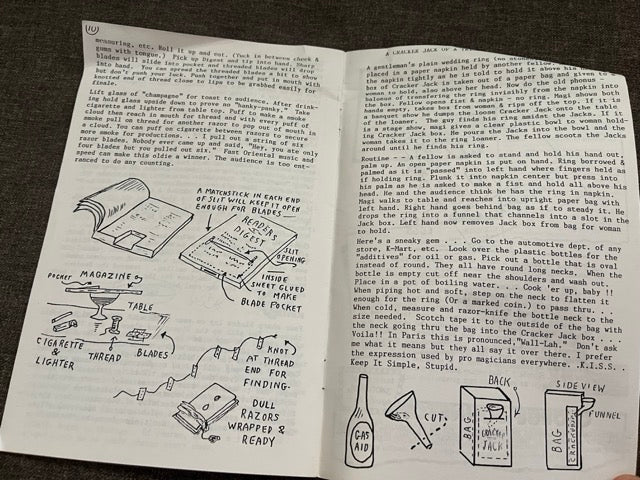 (10)
measuring, etc. Roll it up and out. (Tuck in between cheek &
gums with tongue.) Pick up Digest and tip into hand. Sharp
blades will slide into pocket and threaded blades will drop
into hand. You can spread the threaded blades a bit to show
but don't push your luck. Push together and put in mouth with
knotted end of thread close to lips to be grabbed easily for
finale.
Lift glass of "champagne" for toast to audience. After drink-
ing hold glass upside down to prove no "hanky-panky." Take
cigarette and lighter from table top. Puff to make a smoke
cloud then reach in mouth for thread and with every puff of
smoke pull on thread for another razor to pop out of mouth in
a cloud. You can puff on cigarette between razors to secure
more smoke for productions. . . I pull out a string of six
razor blades. Nobody ever came up and said, "Hey, you ate only
four blades but you pulled out six." Fast Oriental music and
speed can make this oldie a winner. The audience is too ent-
ranced to do any counting.
A MATCHSTICK IN EACH END
OF SLIT WILL KEEP IT OPEN
ENOUGH FOR BLADES
READERS
DIGEST
SLIT
OPENING
INSIDE
SHEET GLUED
TO MAKE
BLADE POCKET
POCKET
MAGAZINE
TABLE
CIGARETTE
&
LIGHTER
THREAD
BLADES
KNOT
AT THREAD
END FOR
FINDING.
DULL
RAZORS
WRAPPED &
READY
A CRACKER JACK OF A
A gentleman's plain wedding ring
placed in a paper napkin held by another fellow.
the napkin tightly as he is told to hold it above his
of Cracker Jack is taken out of a paper bag and given to
woman to hold, also above her head. Now do the old phonus -
balonus of transferring the ring invisibly from the napkin into
the box. Fellow opens fist & napkin - no ring. Magi shows both
hands empty, takes box from woman & rips off the top. If it is
a banquet show he dumps the loose Cracker Jack onto the table
of the loaner. The guy finds his ring amidst the Jacks. If it
is a stage show, magi gives a clear plastic bowl to woman hold-
ing Cracker Jack box. He pours the Jacks into the bowl and the
woman takes it to the ring loaner. The fellow scoots the Jacks
around until he finds his ring.
Routine - A fellow is asked to stand and hold his hand out,
palm up. An open paper napkin is put on hand. Ring borrowed &
palmed as it is "passed" into left hand where fingers held as
if holding ring. Plunk it into napkin center but press into
his palm as he is asked to make a fist and hold all above his
head. He and the audience think he has the ring in napkin.
Magi walks to table and reaches into upright paper bag with
left hand. Right hand goes behind bag as if to steady it. He
drops the ring into a funnel that channels into a slot in the
Jack box. Left hand now removes Jack box from bag for woman
to hold.
Here's a sneaky gem . . . Go to the automotive dept. of any
store, K-Mart, etc. Look over the plastic bottles for the
"additives" for oil or gas. Pick out a bottle that is oval
instead of round. They all have round long necks. When the
bottle is empty cut off near the shoulders and wash out.
Place in a pot of boiling water. . . . Cook 'er up, baby !!
When piping hot and soft, step on the neck to flatten it
enough for the ring (Or a marked coin.) to pass thru. . .
When cold, measure and razor-knife the bottle neck to the
size needed. Scotch tape it to the outside of the bag with
the neck going thru the bag into the Cracker Jack box . . .
Voila!! In Paris this is pronounced,"Wall-Lah." Don't ask
me what it means but they all say it over there. I prefer
the expression used by pro magicians everywhere. .K.I.S.S. .
Keep It Simple, Stupid.
GAS
AID
CUT
BACK
BAG
CRACKER
JACK
SIDE VIEW
FUNNEL
BAG